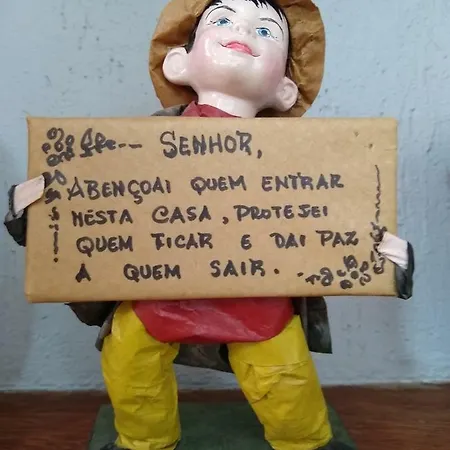 SENHOR,
ABENÇOAI QUEM ENTRAR
NESTA CASA, PROTEJEI
QUEM FICAR E DAI PAZ
A QUEM SAIR.